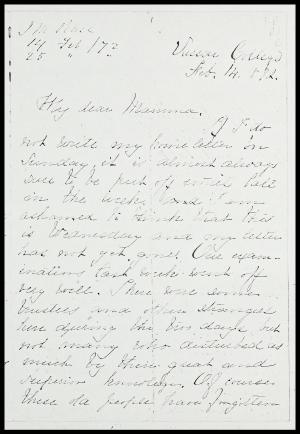 J M Rose
14 Feb / 72
25 " "
Vassar College
Feb. 14. 1872.
My dear Mamma,
If I do
not write my home letter on
Sunday, it is almost always
sure to be put off until late
in the week, and I am
ashamed to think that this
is Wednesday and my letter
has not yet gone. Our exam-
inations last week went off
very well. There were some
trustees and other strangers
here during the two days, but
not many who disturbed us
much by their great and
superior knowledge. Of course
these old people have forgotten